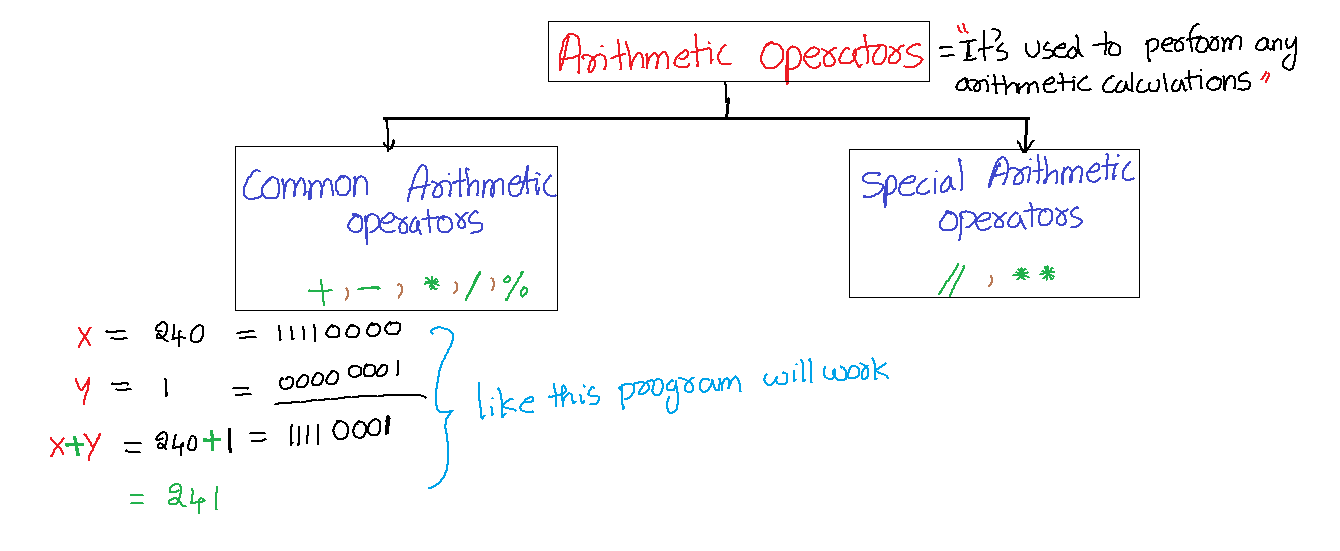 Arithmetic Operators = "It's used to perform any
arithmetic calculations"
Common Arithmetic
operators
+ , - , * , / , %
Special Arithmetic
operators
// , **
x = 240 = 11110000
y = 1 = 0000 0001
x+y = 240+1 = 11110001
= 241
like this program will work